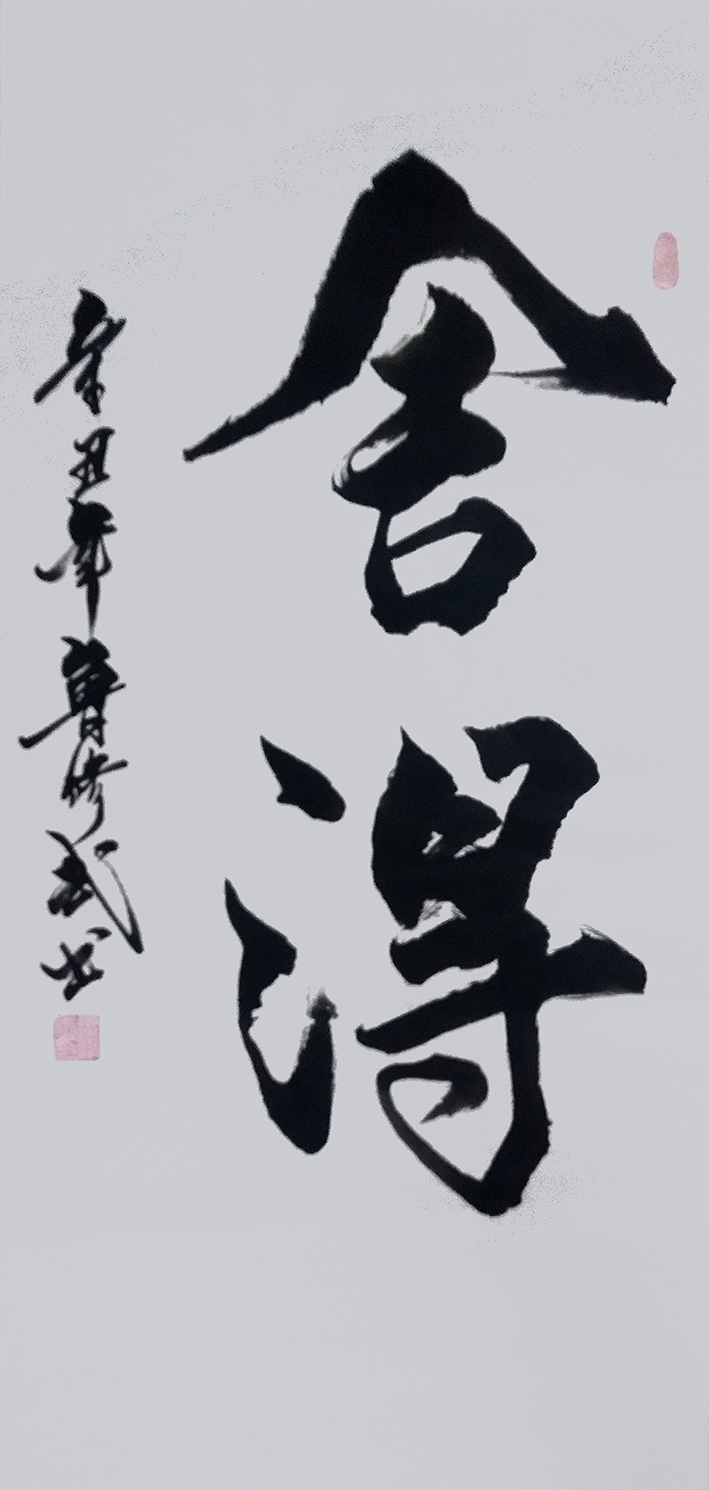 舍得
辛丑年曾修武书